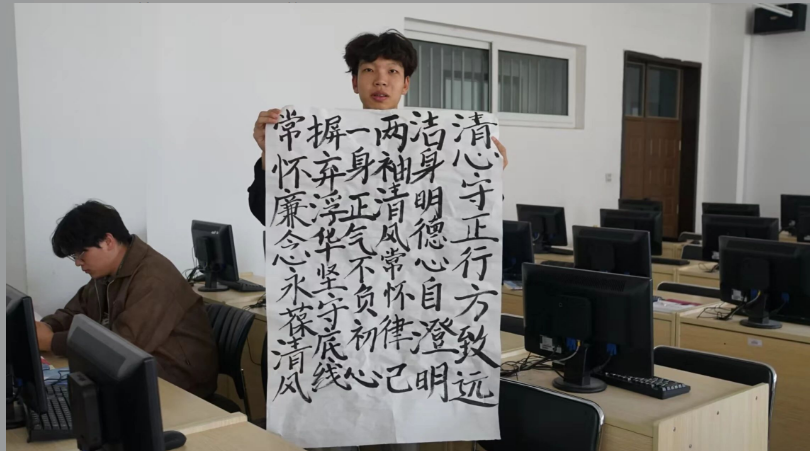 清心守正行方致远
洁身明德心自澄明
两袖清风常怀律己
一身正气不负初心
摒弃浮华坚守底线
常怀廉念永葆清风